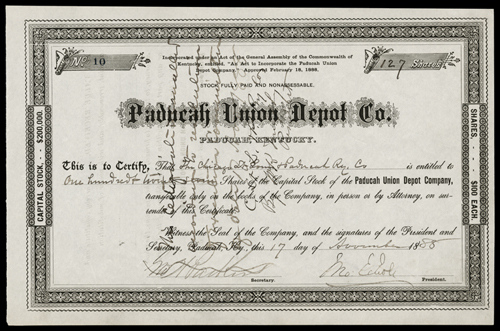 No 10
Incorporated under an Act of the General Assembly of the Commonwealth of
Kentucky, entitled, "An Act to Incorporate the Paducah Union
Depot Company." Approved February 18, 1888.
127 Shares
STOCK FULLY PAID AND NONASSESSABLE.
Paducah Union Depot Co.
PADUCAH, KENTUCKY.
CAPITAL STOCK, - $200,000.
SHARES - - $100 EACH.
This is to Certify, That the Chicago St. Louis & Paducah Ry. Co is entitled to
One hundred & twenty Shares of the Capital Stock of the Paducah Union Depot Company,
transferable only on the books of the Company, in person or by Attorney, on sur-
render of this Certificate.
Witness the Seal of the Company, and the signatures of the President and
Secretary, Paducah, Ky., this 17 day of November 1888
Secretary.
President.